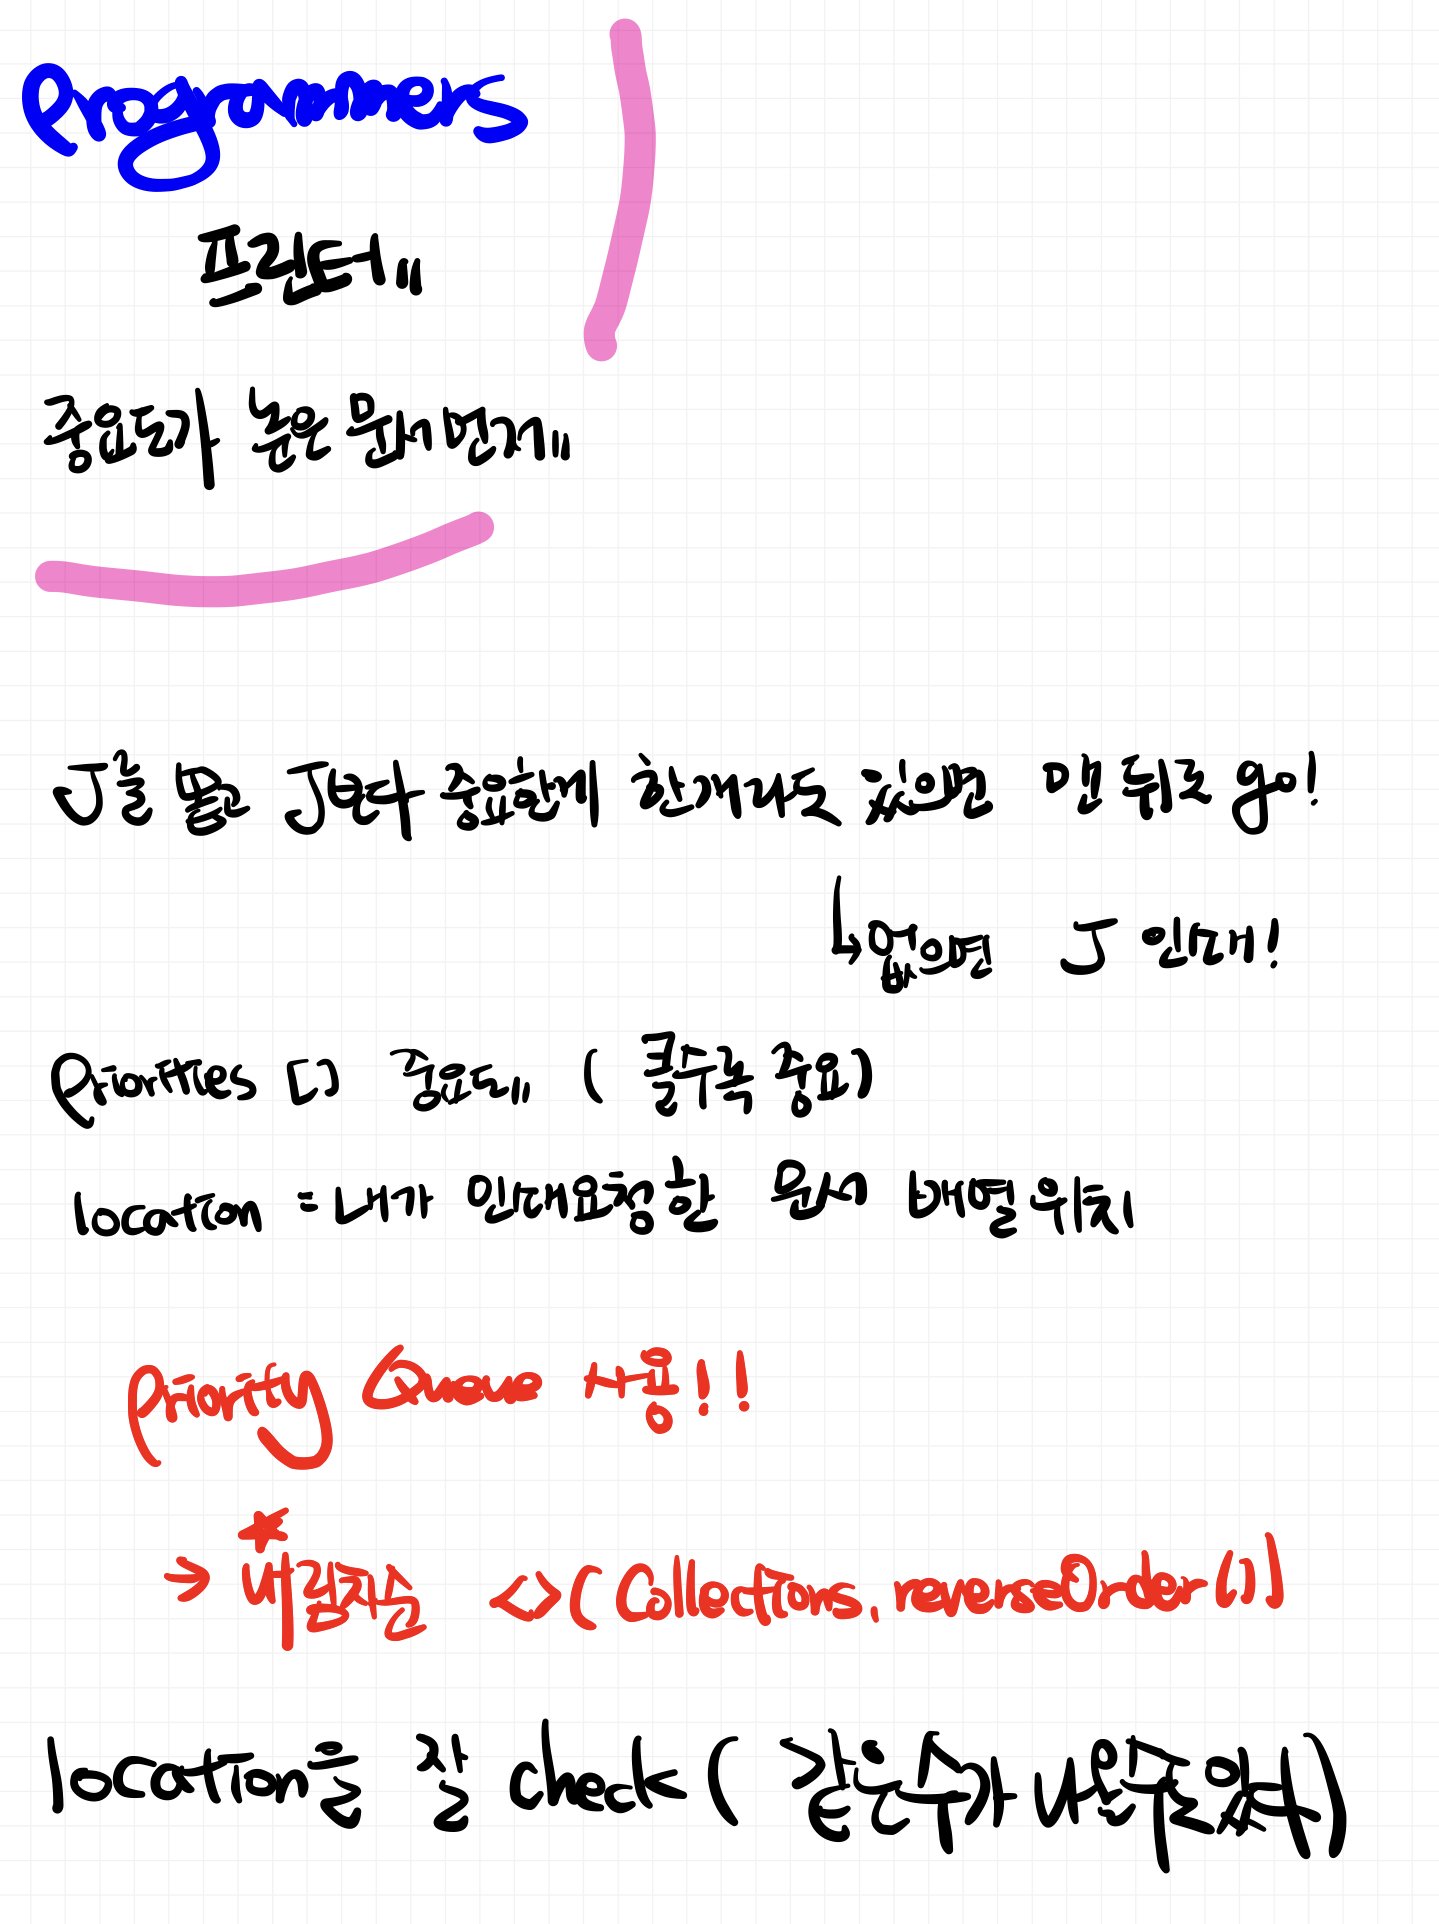 Programmers
프린터"
중요도가 높은 문서 먼저"
J를 뽑고 J보다 중요한게 한개라도 있으면 맨 뒤로 go!
↳ 없으면 J 인쇄!
Priorities [] 중요도" ( 클수록 중요)
location = 내가 인쇄요청한 문서 배열 위치
Priority Queue 사용!!
→ ★내림차순 <>(Collections.reverseOrder())
location을 잘 check ( 같은수가 나올수도있다)